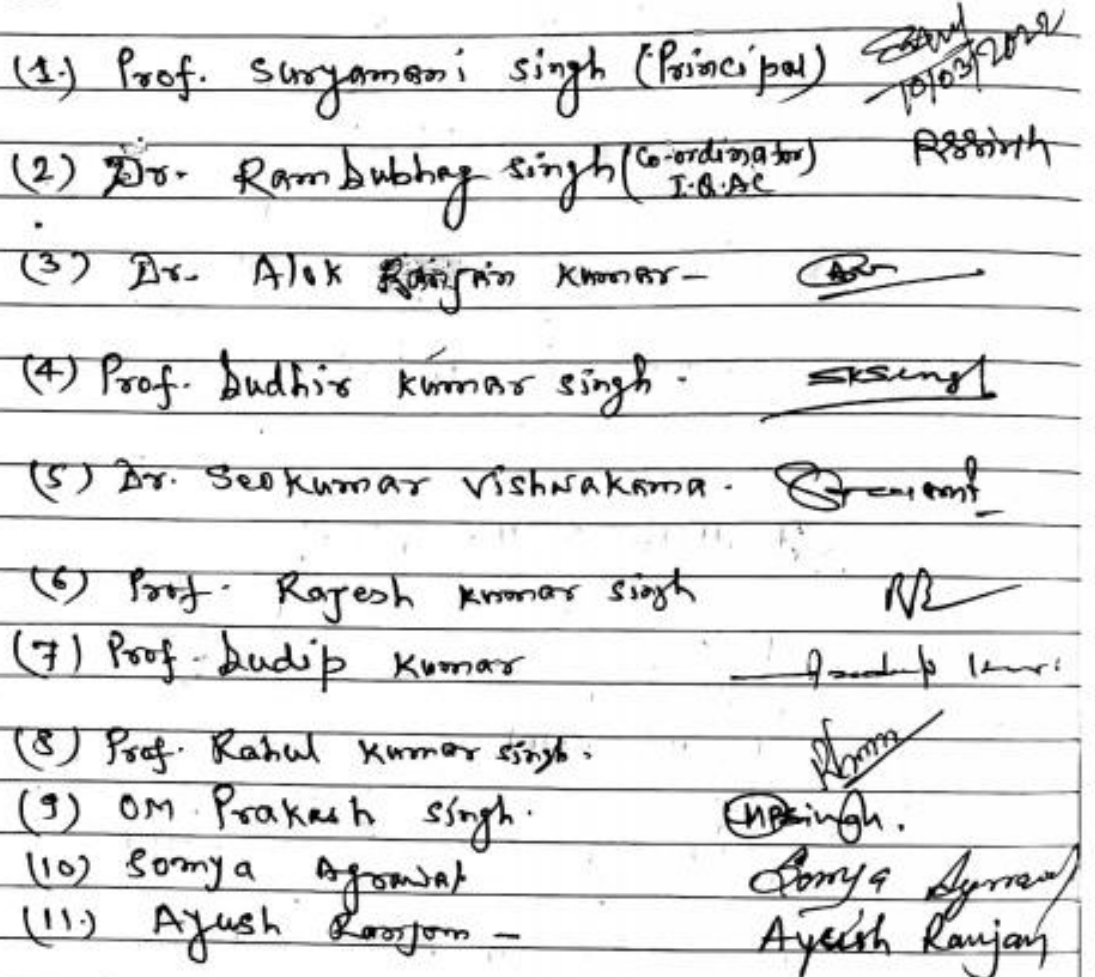 (1.) Prof. Suryamani Singh (Principal) 10/03/2022
(2) Dr. Ram Subhag Singh (Co-ordinator) I.Q.AC RSSingh
(3) Dr. Alok Ranjan Kumar-
(4) Prof. Sudhir Kumar Singh. SKSingh
(5) Dr. Seokumar Vishwakama.
(6) Prof. Rajesh Kumar Singh
(7) Prof. Sudip Kumar
(8) Prof. Rahul Kumar Singh.
(9) OM Prakash Singh. OMPSingh.
(10) Somya Agrawal Somya Agrawal
(11.) Ayush Ranjan - Ayush Ranjan